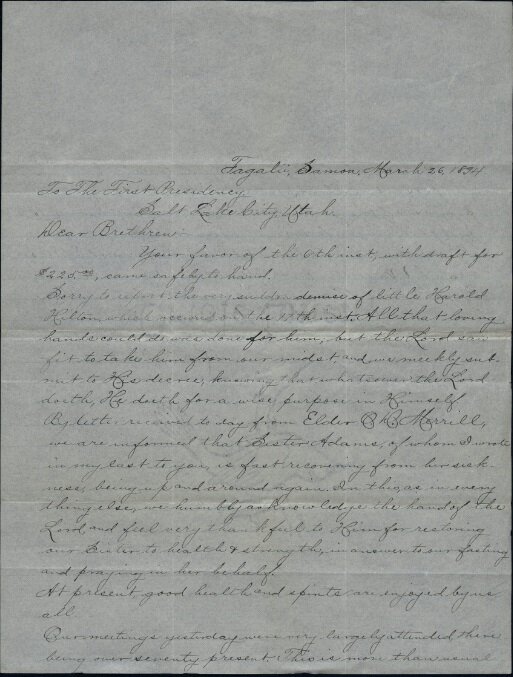 Fagalii, Samoa, March 26, 1894.
To The First Presidency
Salt Lake City, Utah.
Dear Brethren:
Your favor of the 6th inst, with draft for
$225.00, came safely to hand.
Sorry to report the very sudden demise of little Harold
Hilton, which occurred on the 17th inst. All that loving
hands could do was done for him, but the Lord saw
fit to take him from our midst, and we meekly sub-
mit to His decree, knowing that whatsoever the Lord
doeth, He doeth for a wise purpose in Himself.
By letter received to day from Elder Merrill,
we are informed that Sister Adams, of whom I wrote
in my last to you, is fast recovering from her sick-
ness, being up and around again. In this, as in every
thing else, we humbly acknowledge the hand of the
Lord and feel very thankful to Him for restoring
our Sister to health & strength, in answer to our fasting
and praying in her behalf.
At present, good health and spirits are enjoyed by us
all.
Our meetings yesterday were very largely attended there
being over seventy present. This is more than usual